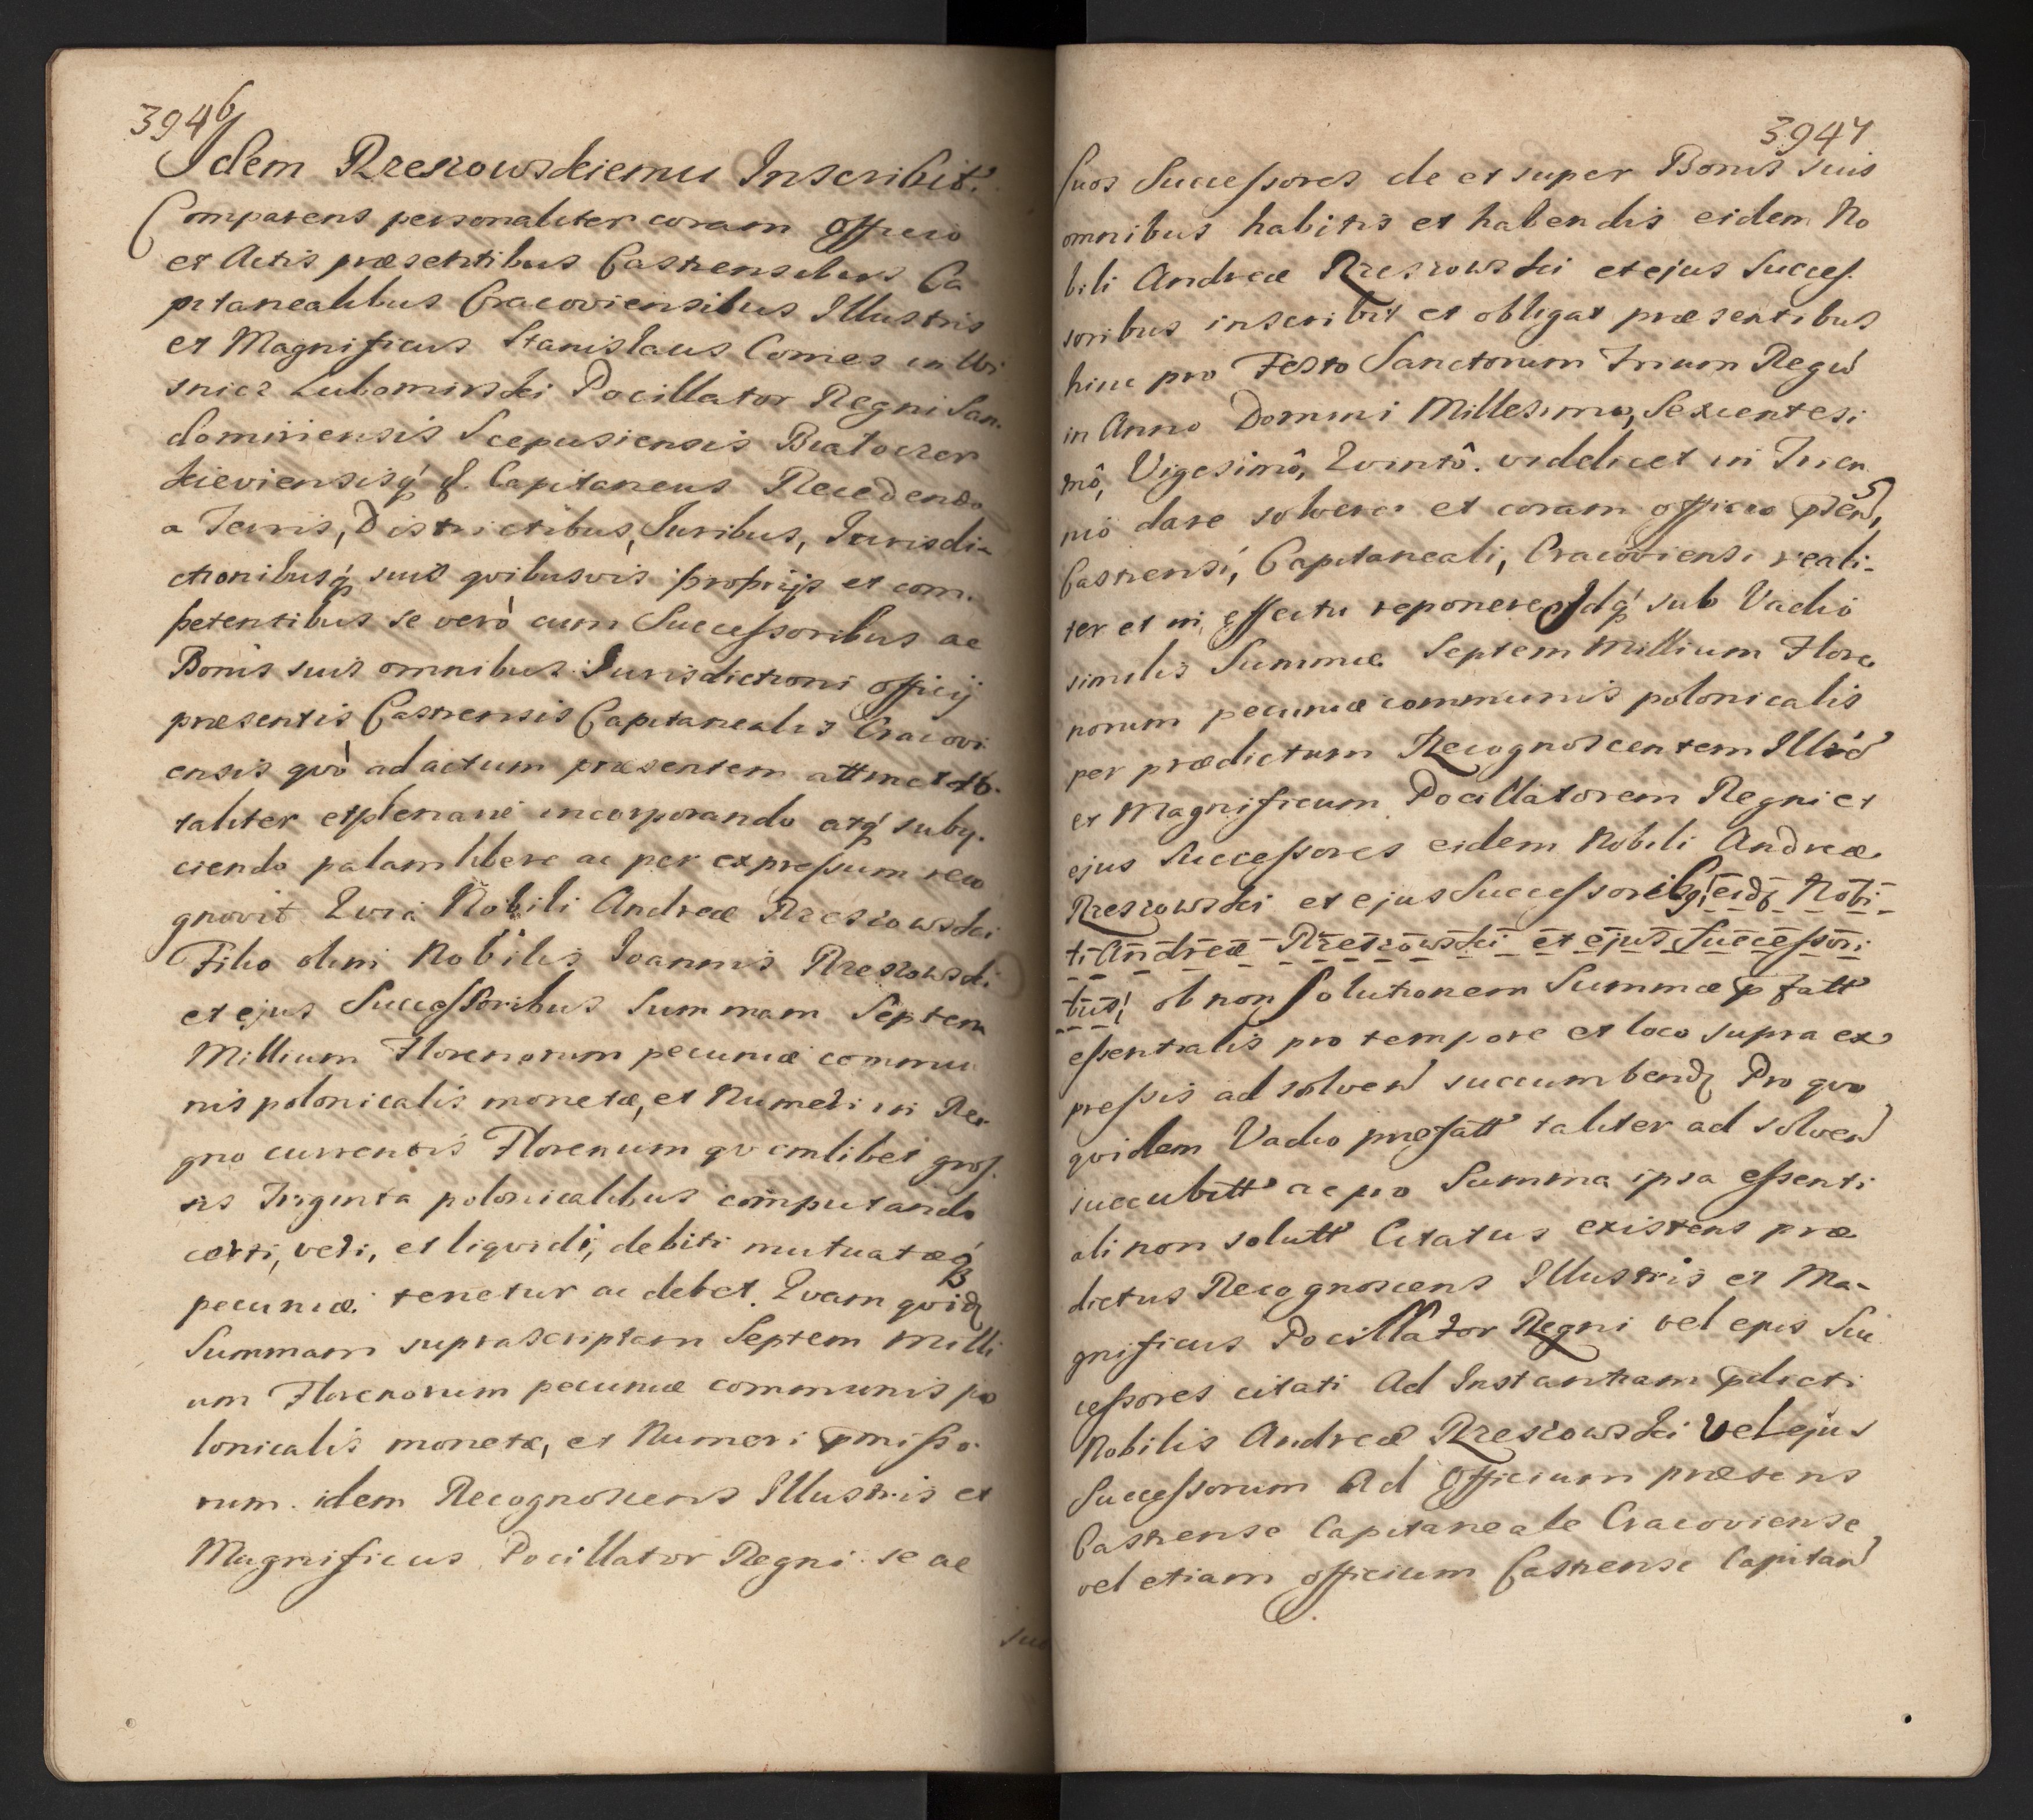 3946
Idem Rzeszowskiemu Inscribit.
Comparens personaliter coram Officio
et Actis præsentibus Castrensibus Ca
pitanealibus Cracoviensibus Illustris
et Magnificus Stanislaus Comes in Wi
snicz Lubomirski Pocillator Regni San.
domiriensis Scepusiensis Biatocer
kieviensisq́ Capitaneus Recedendo
a Terris, Districtibus, Iuribus, Iurisdi-
ctionibusq́ suis qvibusvis proprijs et com.
petentibus se verò cum Successoribus ac
Bonis suis omnibus Iurisdictioni officij
præsentis Castrensis Capitanealis Cracovi
ensis qvò ad actum præsentem attinet to.
taliter etplenarie incorporando atq́ subij.
ciendo palam libere ac per expressum reco
gnovit Qvia Nobili Andreæ Rzeszowski
Filio olim Nobilis Ioannis Rzeszowski
et ejus Successoribus Summam Septem
Millium Florenorum pecuniæ commu
nis polonicalis monetæ, et Numeri in Re
gno currentis Florenum qvemlibet gros.
sis Triginta polonicalibus computando
certi, veri, et liqvidi, debiti mutuatæq́
pecuniæ. tenetur ac debet. Qvam qvidȝ
Summam suprascriptam Septem Milli
um Florenorum pecuniæ communis po
lonicalis monetæ, et Numeri pmisso.
rum. idem Recognoscens Illustris et
Magnificus Pocillator Regni se ac
3947
suos Successores de et super Bonis suis
omnibus habitis et habendis eidem No
bili Andreæ Rzeszowski et ejus Succes.
soribus inscribit et obligat præsentibus
hinc pro Festo Sanctorum Trium Regũ
in Anno Domini Millesimo, Sexcentesi
mô, Vigesimô, Qvintô. videlicet in Trien
nio dare solvere et coram officio pñti,
Castrensi, Capitaneali, Cracoviensi reali-
ter et in effectu reponere Idq́ sub Vadio
similis Summæ Septem Millium Flore
norum pecuniæ communis polonicalis
per prædictum Recognoscentem Illrẽ
et Magnificum Pocillatorem Regni et
ejus Successores eidem Nobili Andreæ
Rzeszowski et ejus Successoribq́, eidȝ Nobi-
li Andreæ Rzeszowski et ejus Successori
bus, ob non solutionem Summæ pfatt
essentialis pro tempore et loco supra ex
pressis ad solven succumbendȝ Pro qvo
qvidem Vadio præfatt taliter ad solven
succubitt ac pro Summa ipsa essenti
ali non solutt Citatus existens præ
dictus Recognoscens Illustris et Ma-
gnificus Pocillator Regni vel ejus Suc
cessores citati Ad Instantiam pdicti
Nobilis Andreæ Rzeszowski vel ejus
Successorum Ad Officium præsens
Castrense Capitaneale Cracoviense
vel etiam officium Castrense Capitan